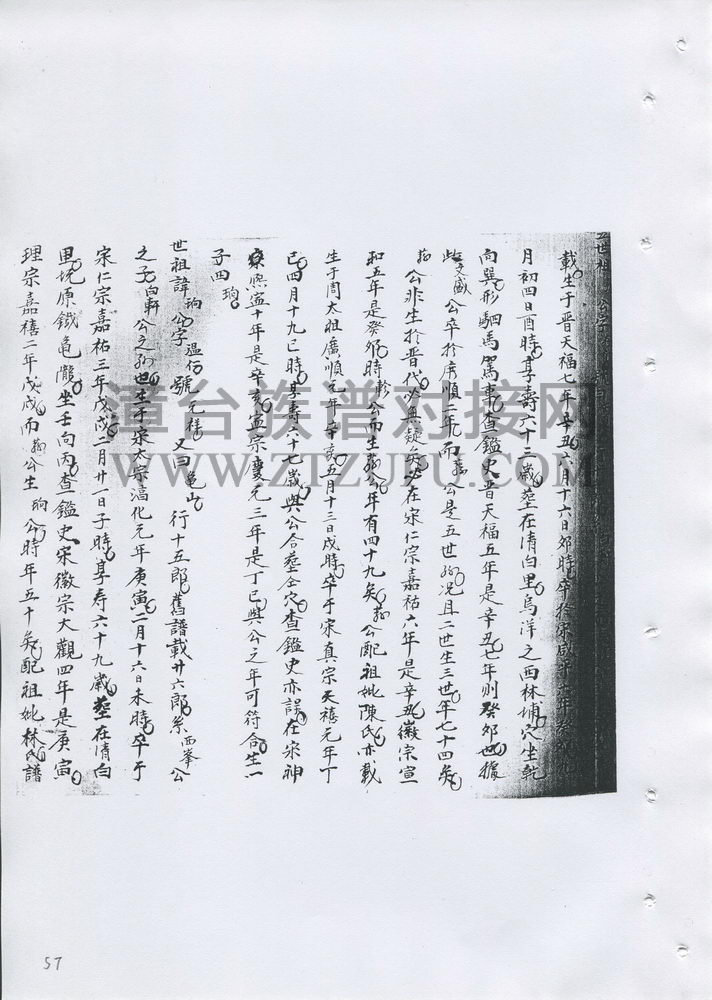 載生于晋天福七年辛丑六月十六日卯時卒於宋咸平
月初四日酉時享壽六十三歲塟在清白里烏洋之西林埔穴坐乾
向巽形駟馬 車查鑑史晋天福五年是辛丑七年則癸卯也據
公卒於廣順二年而 公是五世 况且二世生三世年七十四矣
公非生於晋代必無疑矣必在宋仁宗嘉祐六年是辛丑徽宗宣
和五年是癸卯時 公而生 公年有四十九矣 公配祖妣陳氏亦載
生于周太祖廣順元年辛亥五月十三日戌時卒于宋真宗天禧元年丁
巳四月十九巳時享壽六十七歲與公合塟仝穴查鑑史亦誤在宋神
宗熙寧十年是辛亥寧宗慶元三年是丁巳與公之年可符合生一
子曰珣
世祖諱珣公字温 號元様 又曰龜山 行十五郎舊譜載廿六郎系西峯公
之子白軒公之 也生于宋太宗淳化元年庚寅二月十六日未時卒于
宋仁宗嘉祐三年戊戌二月廿一日子時享寿六十九歲塟在清白
里坑原鐵龜隴坐壬向丙查鑑史宋徽宗大觀四年是庚寅
理宗嘉禧二年戊戌而 公生珣公時年五十矣配祖妣林氏譜
漳台族谱对接网
WWW.ZTZUPU.COM
57